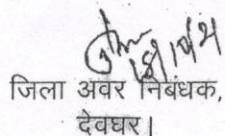 जिला अवर निबंधक,
देवघर।